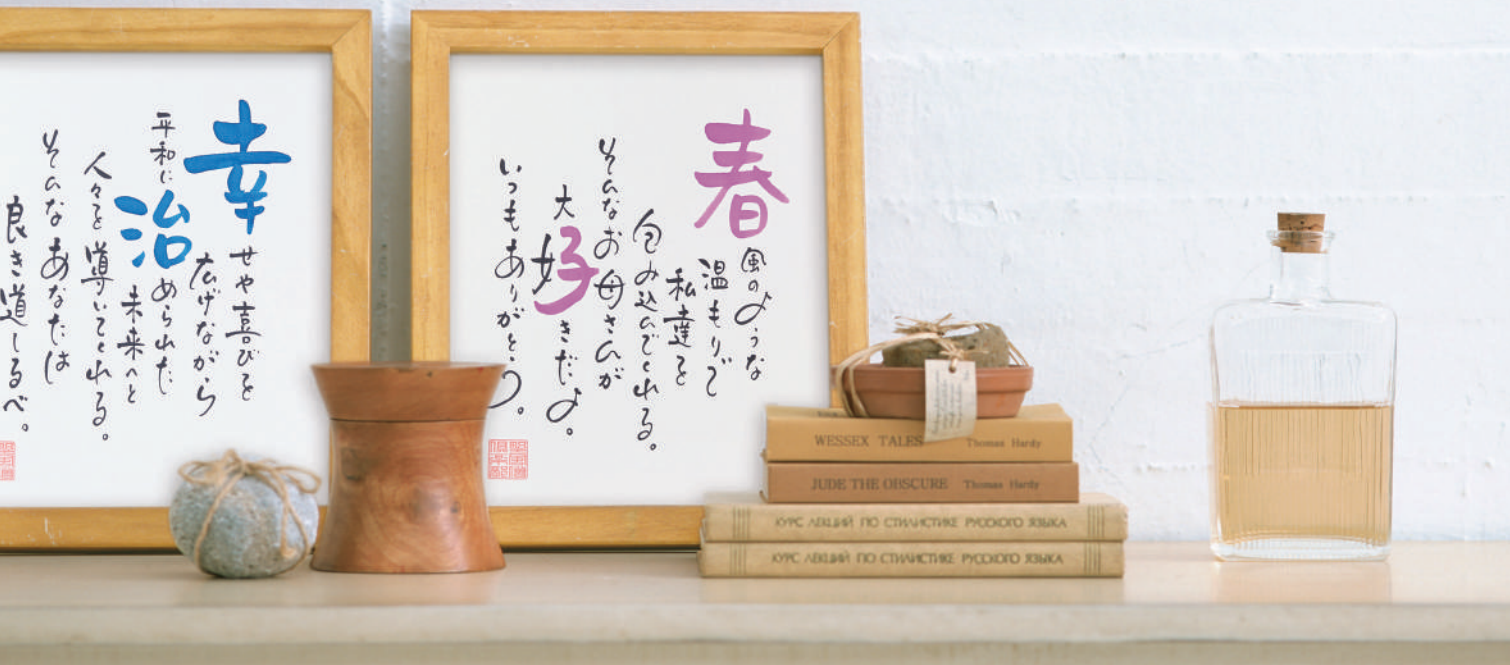 幸せや喜びを
広げながら
平和に治められた
未来へと
人々を導いてくれる。
そんなあなたは
良き道しるべ。
春風のような
温もりで
私達を
包み込んでくれる。
そんなお母さんが
大好きだよ。
いつもありがとう。
WESSEX TALES Thomas Hardy
JUDE THE OBSCURE Thomas Hardy
КУРС ЛЕКЦИЙ ПО СТИЛИСТИКЕ РУССКОГО ЯЗЫКА
КУРС ЛЕКЦИЙ ПО СТИЛИСТИКЕ РУССКОГО ЯЗЫКА